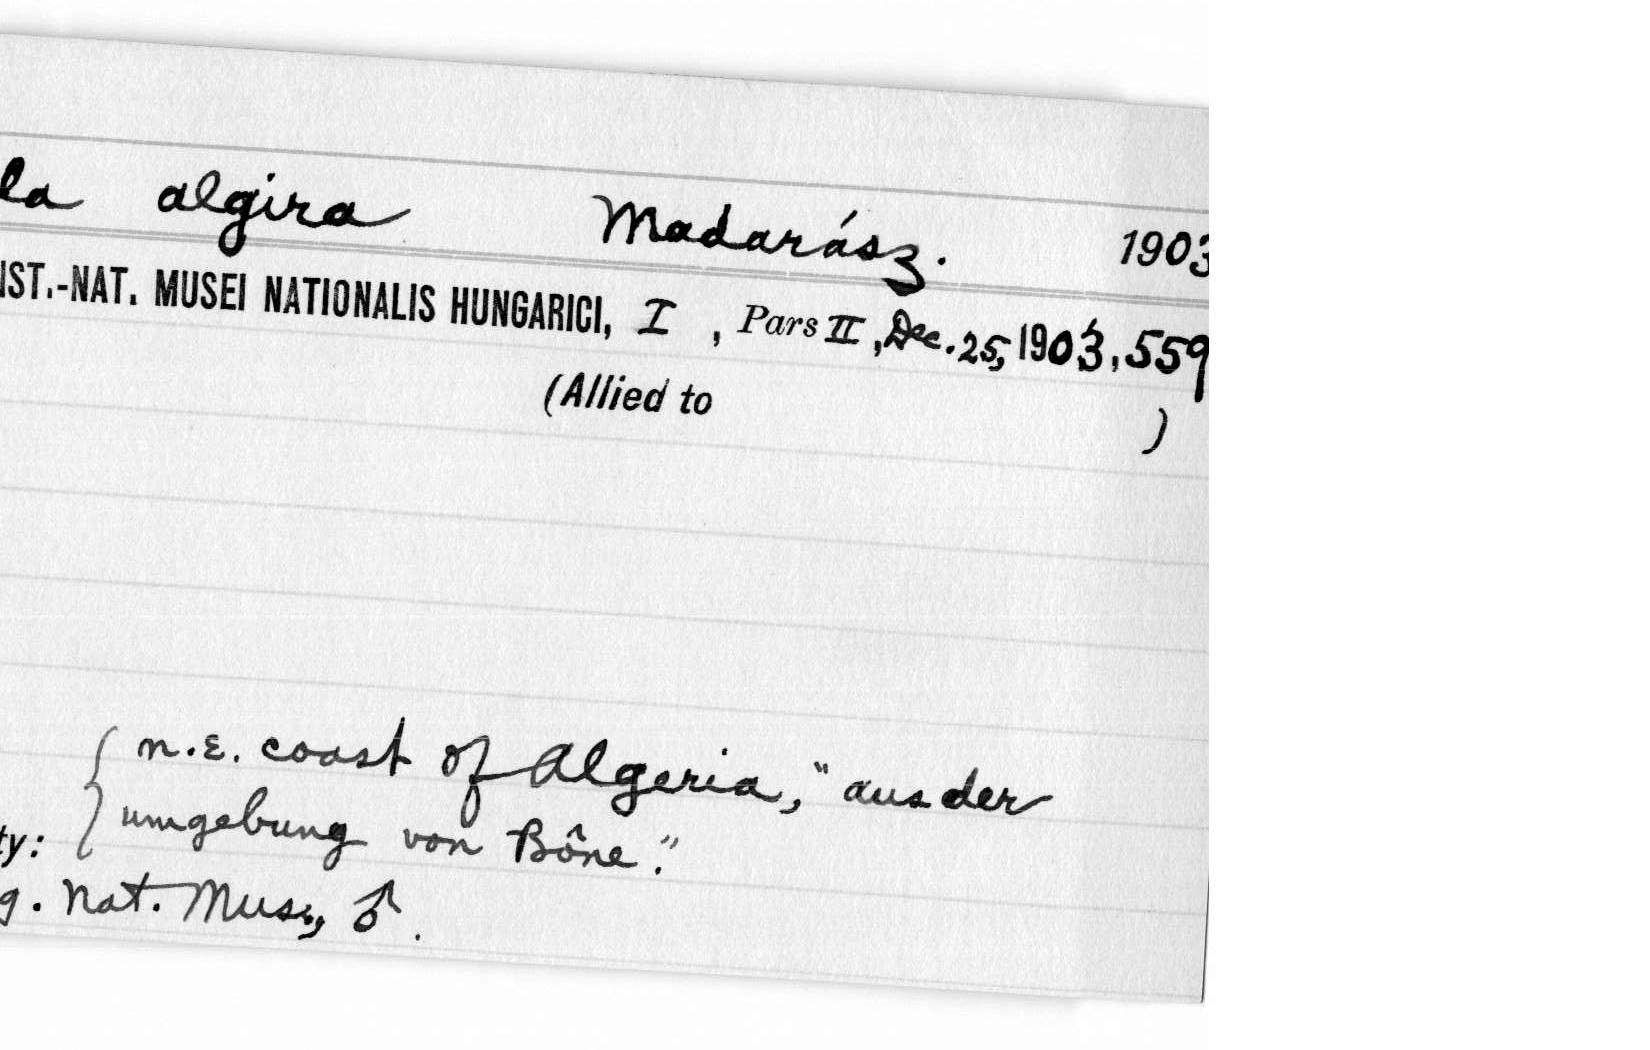 la algira Madarász. 1903
IST.-NAT. MUSEI NATIONALIS HUNGARICI, I , Pars II, Dec. 25, 1903, 559
(Allied to )
n.E. coast of Algeria, "aus der
umgebung von Bône."
ty:
g. Nat. Mus., ♂.